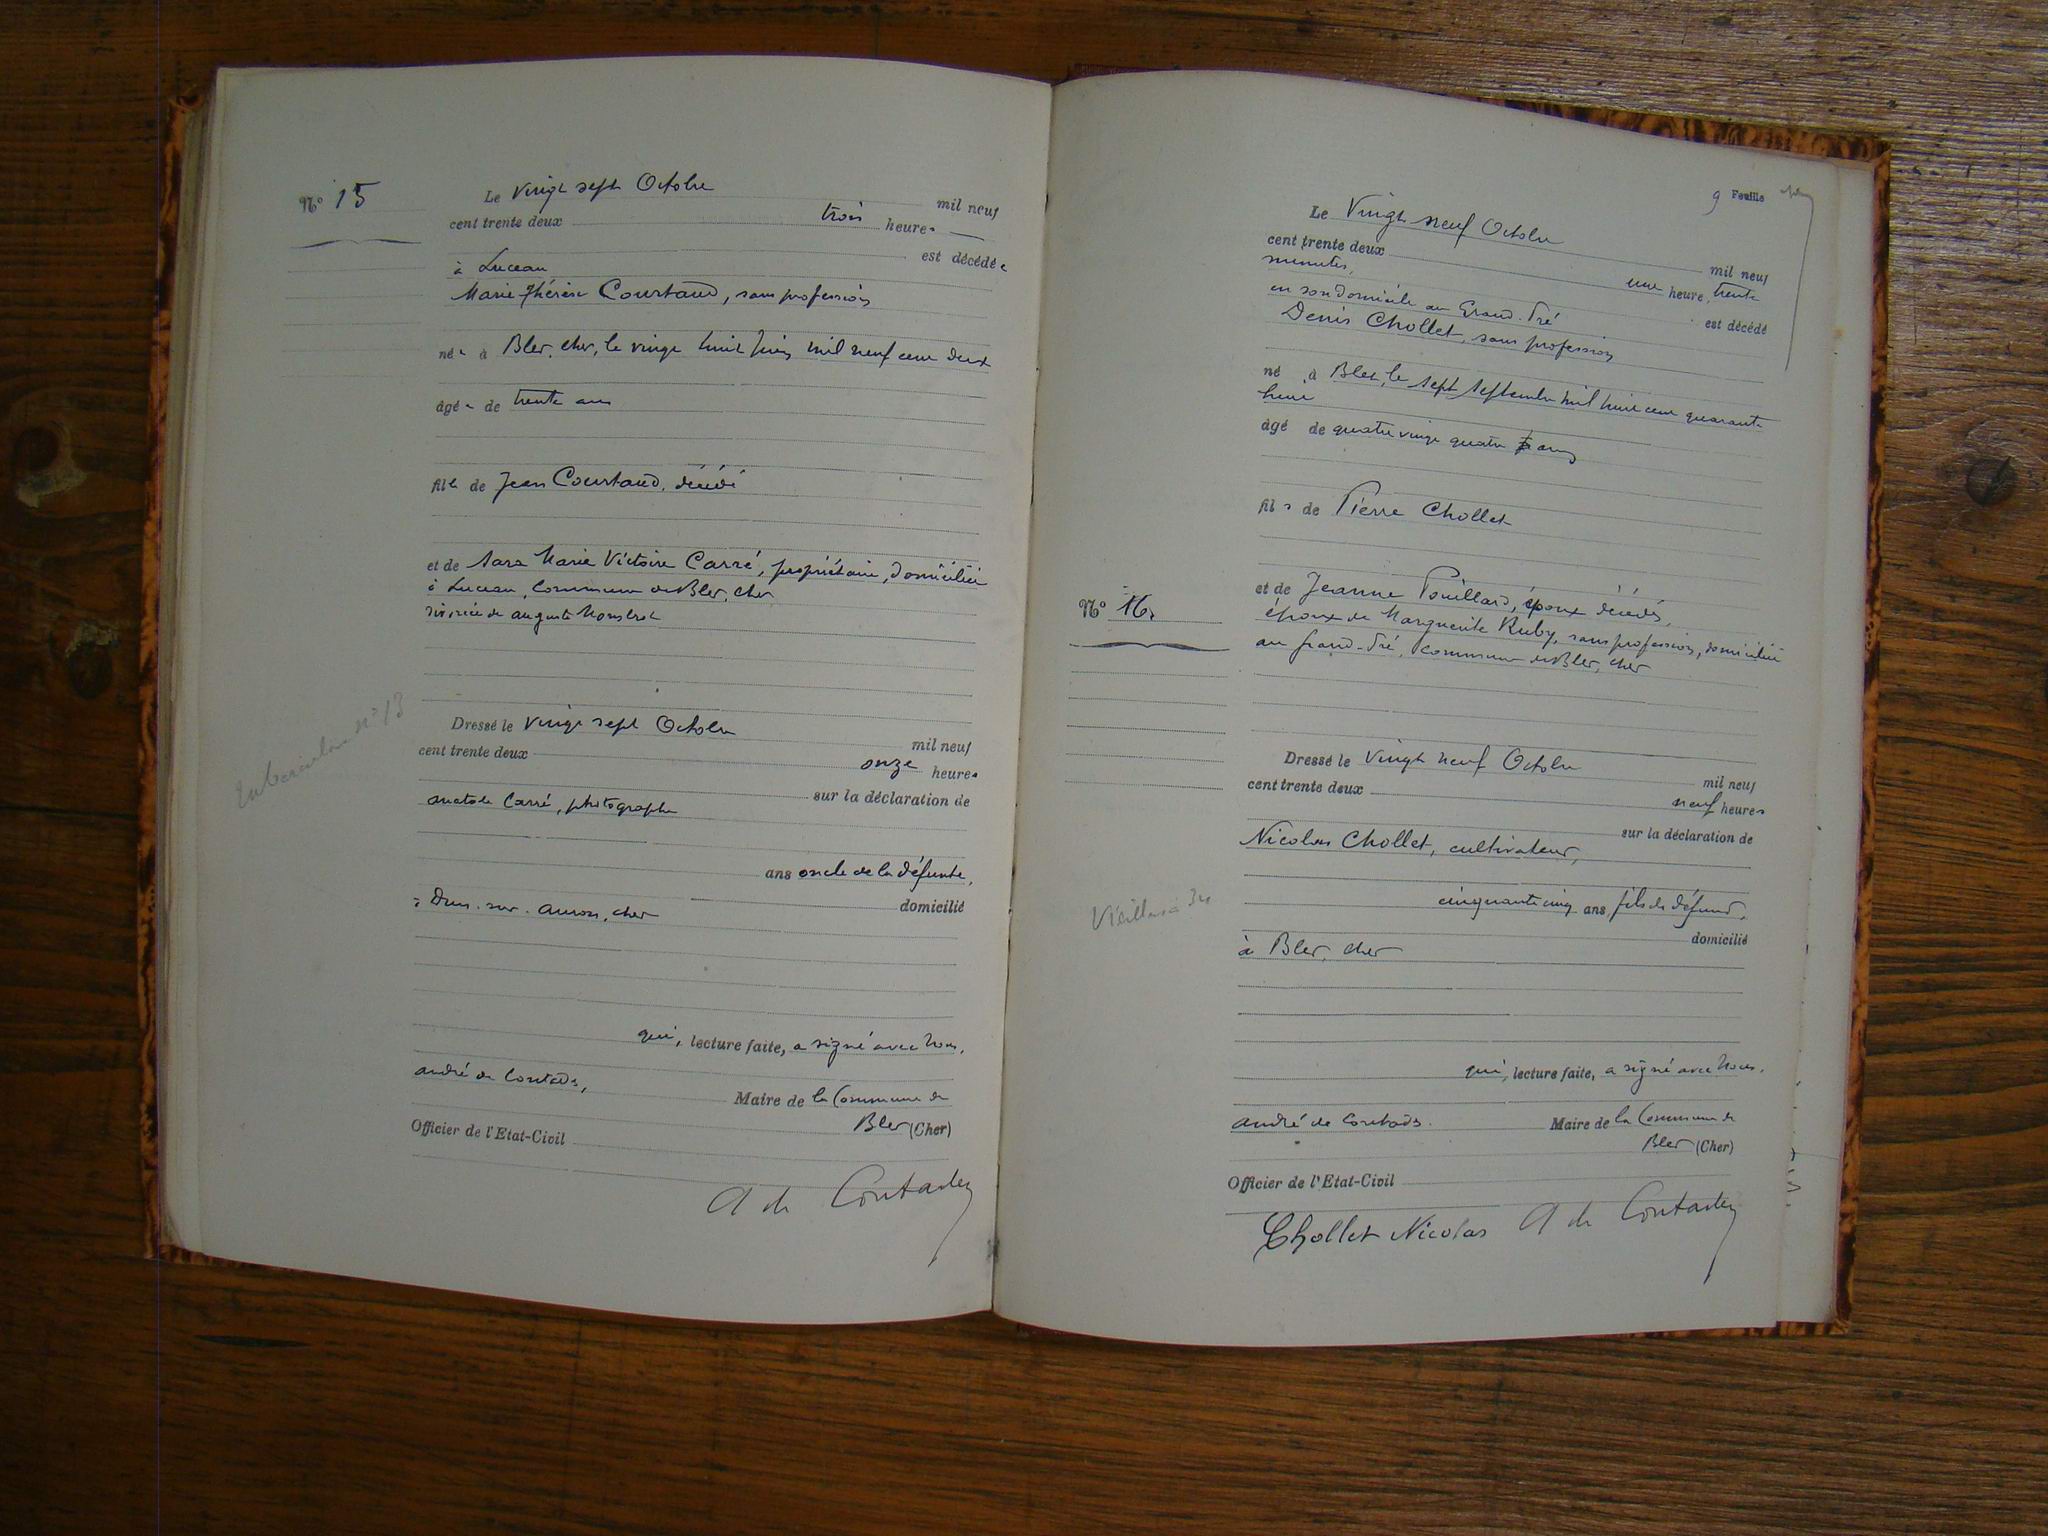 N° 15
Le vingt sept Octobre mil neuf
cent trente deux trois heures
est décédée
à Luceau
Marie Thérèse Courtaud, sans profession
née à Blet, Cher, le vingt huit juin mil neuf cent deux
âgée de trente ans
fille de Jean Courtaud, décédé
et de Sara Marie Victoire Carré, propriétaire, domiciliée
à Luceau, commune de Blet, Cher
divorcée de Auguste
Dressé le vingt sept Octobre mil neuf
cent trente deux onze heures
sur la déclaration de
Anatole Carré, photographe
ans oncle de la défunte,
domicilié
à Dun-sur-Auron, Cher
qui, lecture faite, a signé avec nous,
André de Contades,
Maire de la Commune de
Blet (Cher)
Officier de l'Etat-Civil
A de Contades
n° 13
9 Feuille
Le Vingt neuf Octobre
mil neuf
cent trente deux
une heure, trente
minutes,
est décédé
en son domicile au Grand-Pré
Denis Chollet, sans profession
né à Blet, le sept septembre mil huit cent quarante
huit
âgé de quatre vingt quatre ans
fils de Pierre Chollet
N° 16.
et de Jeanne Pouillard, époux décédés,
époux de Marguerite Ruby, sans profession, domiciliée
au Grand-Pré, commune de Blet, Cher
Dressé le vingt neuf Octobre
mil neuf
cent trente deux
neuf heures
sur la déclaration de
Nicolas Chollet, cultivateur,
cinquante cinq ans, fils du défunt,
domicilié
à Blet, Cher
qui, lecture faite, a signé avec nous,
André de Contades.
Maire de la Commune de
Blet (Cher)
Officier de l'Etat-Civil
Chollet Nicolas A de Contades